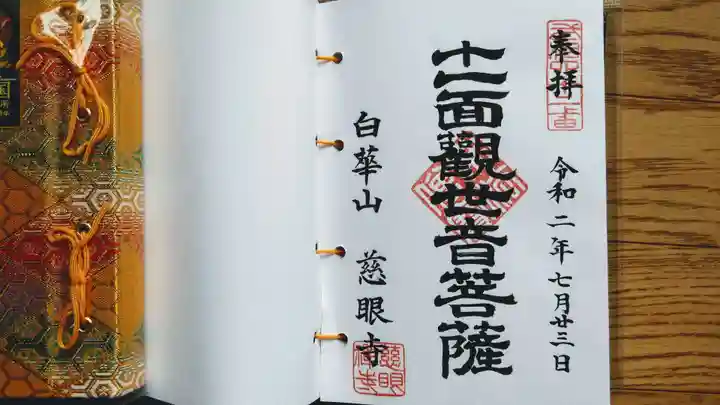 奉拝
令和二年七月廿三日
十一面觀世音菩薩
白華山 慈眼寺
慈眼